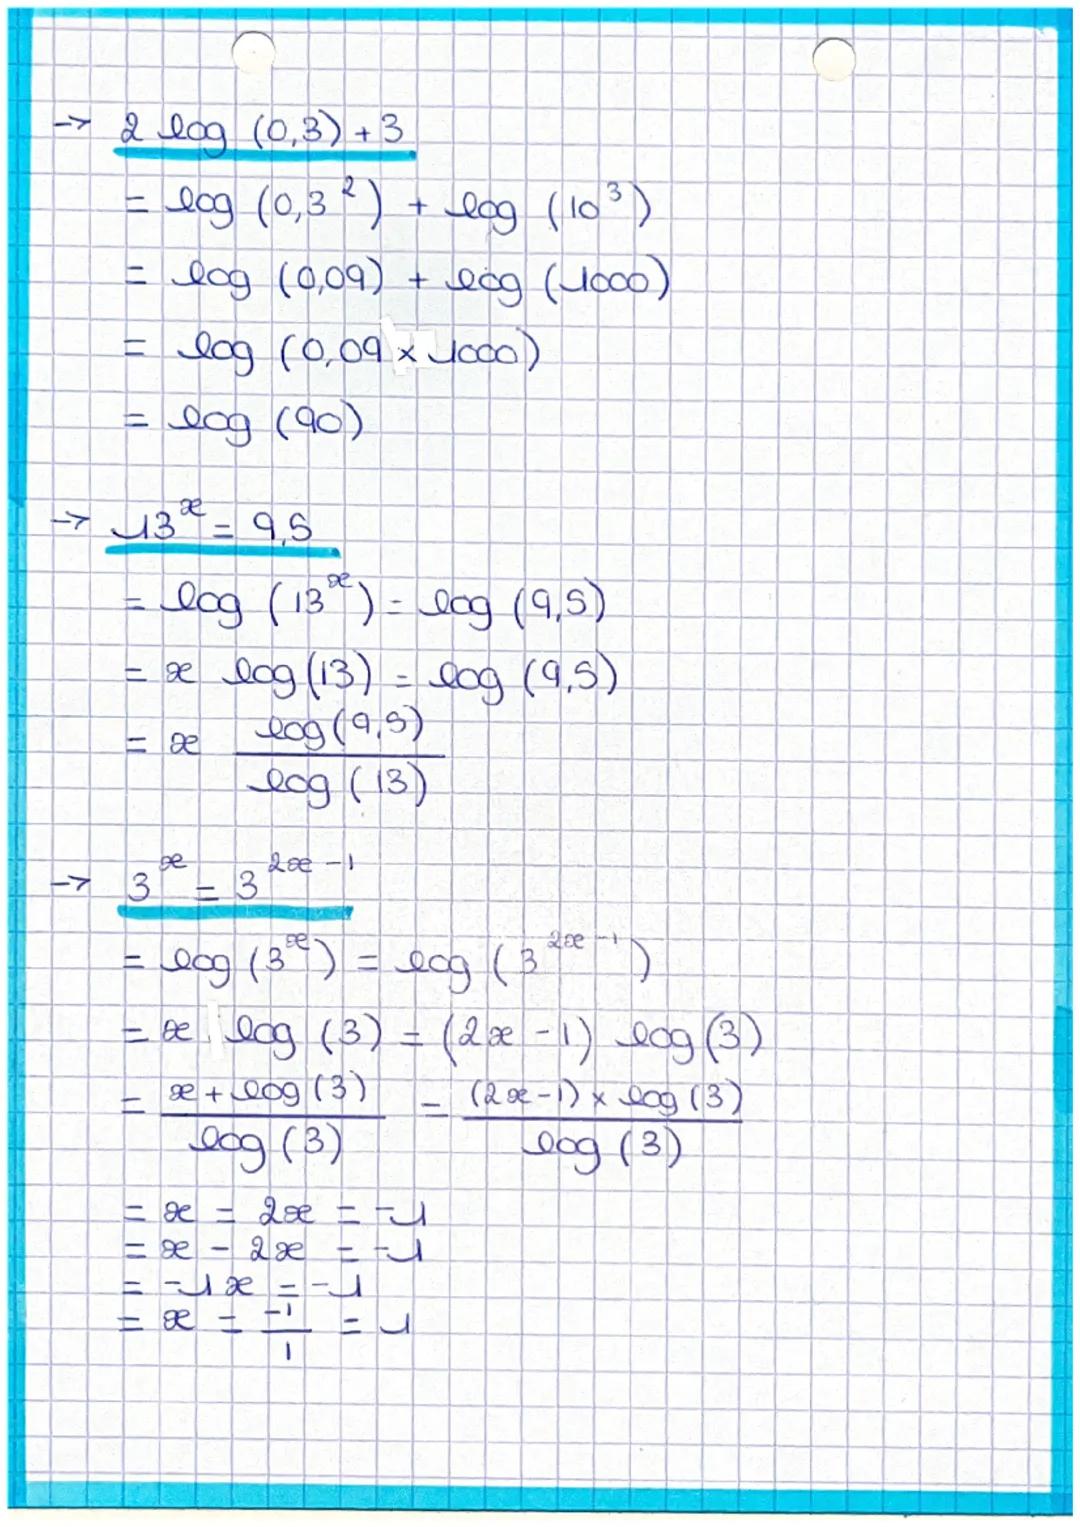 → 2 log (0,3) + 3
= log (0,3²) + log (10³)
= log (0,09) + log (1000)
= log (0,09 × 1000)
= log (90)
→ 13ˣ = 9,5
= log (13ˣ) = log (9,5)
= x log (13) = log (9,5)
= x log (9,5) / log (13)
→ 3ˣ = 3²ˣ⁻¹
= log (3ˣ) = log (3²ˣ⁻¹)
= x log (3) = (2x - 1) log (3)
= x + log (3) / log (3) = (2x - 1) × log (3) / log (3)
= x = 2x = -1
= x - 2x = -1
= -1x = -1
= x = -1 / 1 = 1